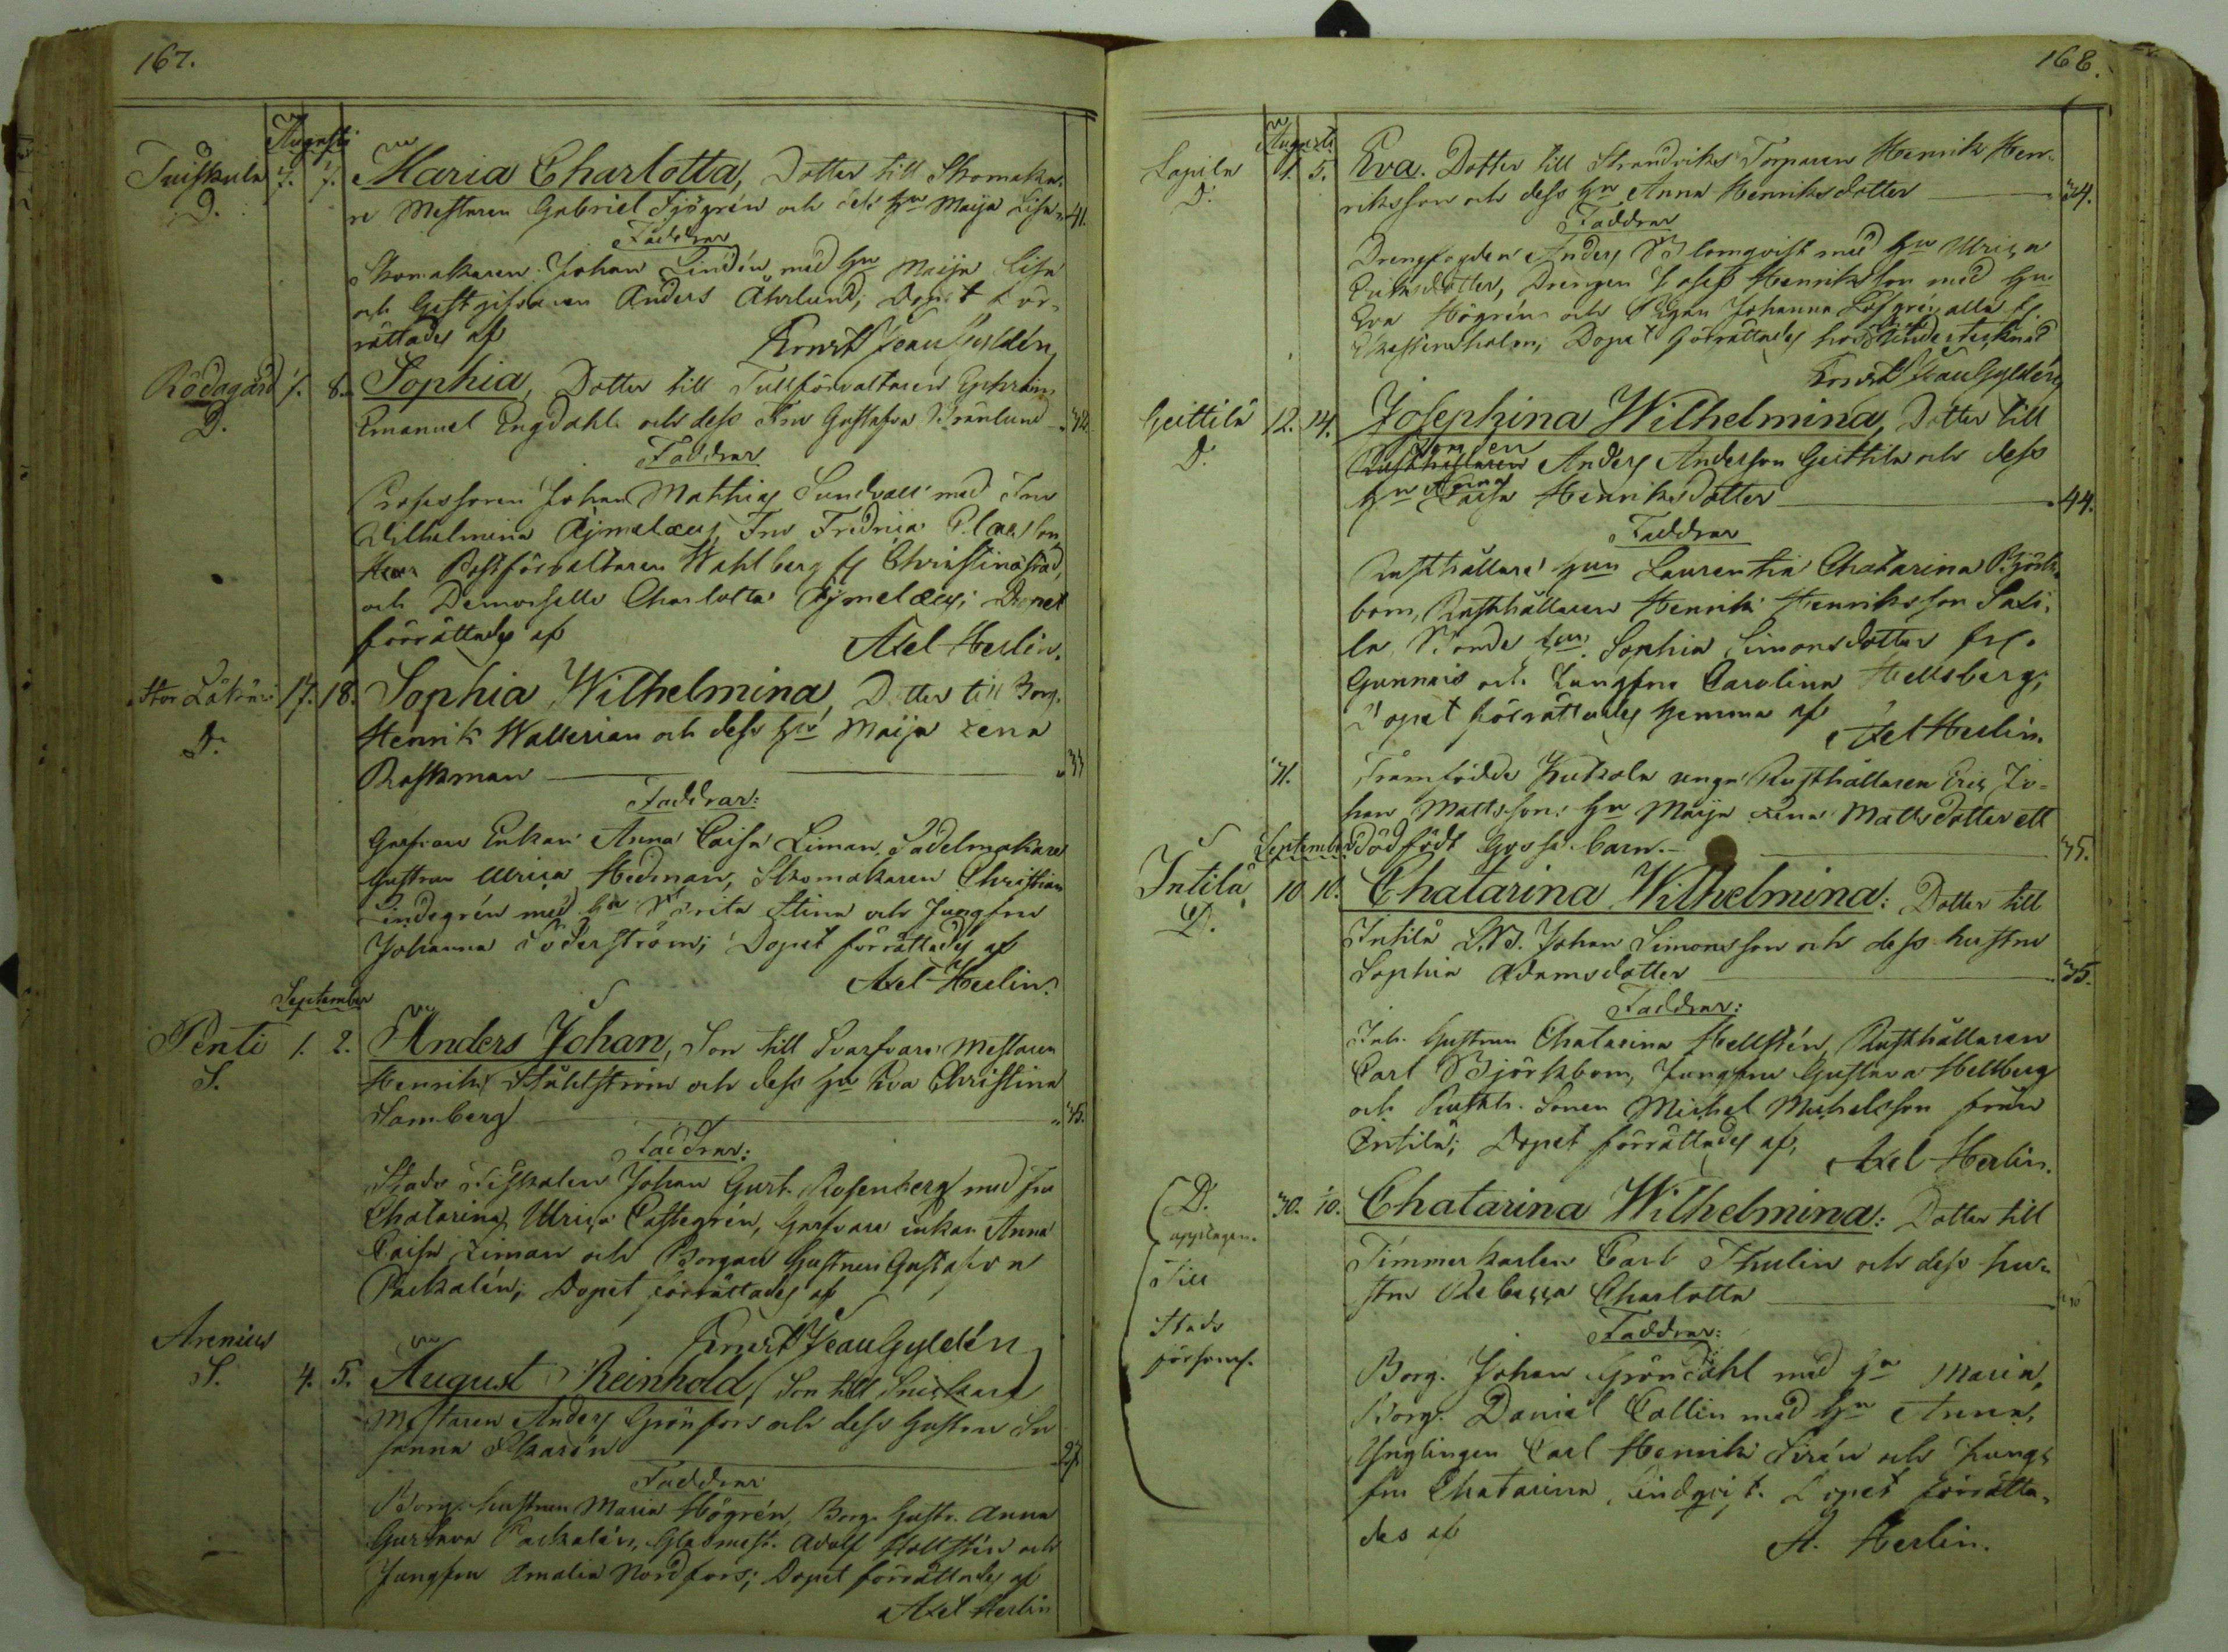 167.
Augusti
Tuiskula 7. 7. Maria Charlotta, Dotter till Skomaka-
D. re Mestaren Gabriel Sjögrén och dess Hu Maija Lisa 41.
Faddrar
Skomakaren Johan Lindén med Hu Maija Lisa
och Gestgifvaren Anders Åhrlund; Dopet för-
rättades af
Ernst Jean Gyldén
Rödagård 7. 8. Sophia, Dotter till Tullförvaltaren Ephraim
D. Emanuel Engdahl och dess Fru Gustafva Grönlund 32.
Faddrar
Professoren Johan Matthias Sundvall med Fru
Wilhelmina Aejmelaeus, Fru Fredrica
Herr Postförvaltaren Wahlberg fr Christinestad,
och Demoiselle Charlotta Aejmelaeus; Dopet
förrättades af
Axel Herlin.
Stor 17. 18. Sophia Wilhelmina, Dotter till Borg.
D. Henrik Wallerian och dess Hu Maija Lena
Raskman 33
Faddrar:
Garfvare Enkan Anna Caisa Ziman, Sadelmakare
hustrun Ulrica Hedman, Skomakaren Christian
Lindegrén med Hu Brita Stina och Jungfru
Johanna Söderström; Dopet förrättades af
Axel Herlin.
September
Penti 1. 2. Anders Johan, Son till Svarfvare Mestaren
S. Henrik Ståhlström och dess Hu Eva Christina
Hamberg 35.
Faddrar:
Stads Fiskalen Johan Gust. Rosenberg med Fru
Chatarina Ulrica Castegrén, Garfvare enkan Anna
Caisa Ziman och Borgare hustrun Gustafva
Packalén; Dopet förrättades af
Ernst Jean Gyldén
Arenius
S. 4. 5. August Reinhold, Son till Snickare
Mestaren Anders Grönfors och dess hustru Su
sanna Ekarén 27.
Faddrar
Borg. hustrun Maria Högrén, Borg. hustr. Anna
Gustava Packalén, Glasmest. Adolf Hellstén och
Jungfru Amalia Nordfors; Dopet förrättades af
Axel Herlin
168.
Augusti
Lapila 4. 5. Eva. Dotter till Strandviks Torparen Henrik Hen-
D. riksson och dess Hu Anna Henriksdotter 34.
Faddrar
Drengfogden Anders Blomqvist med Hu Ulrica
Eriksdotter, Drengen Josef Henriksson med Hu
Eva Högrén och Pigan Johanna Löfgrén alla fr
holm; Dopet förrättades hos undertecknad
Ernst Jean Gyldén
Geittilä 12. 14. Josephina Wilhelmina, Dotter till
D. Rusthållaren Anders Andersson Geittila och dess
Hu Anna Caisa Henriksdotter 44.
Faddrar
Rusthållare hun Laurentia Chatarina Björk-
bom, Rusthållaren Henrik Henriksson
la, Bonde hun Sophia Simonsdotter fr.
Gunnais och Jungfru Carolina Hellsberg;
Dopet förrättades hemma af
Axel Herlin.
31. Framfödde Kukola unga Rusthållaren Eric Jo-
han Mattssons Hu Maija Lena Mattsdotter ett
September dödfödt Gosse barn. 35.
Intilä 10. 10. Chatarina Wilhelmina: Dotter till
D. Intilä Johan Simonsson och dess hustru
Sophia Adamsdotter 35.
Faddrar:
Inh. Hustrun Chatarina Hellstén, Rusthållaren
Carl Björkbom, Jungfru Gustava Hellberg
och Rusth. Sonen Michel Michelsson från
Intilä; Dopet förrättades af,
Axel Herlin.
D. 30. 1/10. Chatarina Wilhelmina: Dotter till
uppslagen. Timmerkarlen Carl Thulin och dess hu-
Till stru Rebecca Charlotta
Stads Faddrar:
församl. Borg. Johan Gröndahl med Hu Maria,
Borg. Daniel Collin med Hu Anna,
Ynglingen Carl Henrik Sirén och Jung-
fru Chatarina Lindqvist. Dopet förrätta-
des af
A. Herlin.